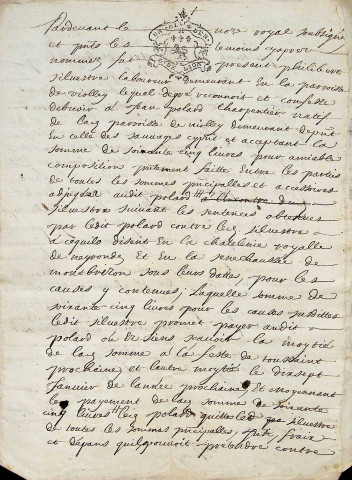 Pardevant le notre royal soubsigné
et prêts les temoins cyaprès
nommes fut present philibert
silvestre laboureur demeurant En la paroisse
de violley lequel de gré reconnoit et confesse
debvoir a jean polard charpentier natif
de lad paroisse de violley demeurant depuis
En celle des sauvages cyprnt et acceptant la
somme de soixante cinq livres pour amiable
composition prntement faitte Entre les parties
de toutes les sommes prcipalles et accessoires
adjugées audit polard a l'encontre dud
silvestre suivant les sentences obtenues
par ledit polard contre led silvestre
a cequils disent En la chatelenie royalle
de neyronde et En la senechaussée de
montbrizon sous leurs dattes, pour les
causes y contenues; Laquelle somme de
soixante cinq livres pour les causes susdittes
ledit silvestre promet payer audit
polard ou es siens scavoir la moytié
de lad somme a la feste de toussaint
prochaine et lautre moytié le dixsept
Janvier de lannée prochaine Et moyennant
le payement de lad somme de soixante
cinq livres led polard quitte led silvestre
de toutes les sommes prcipalles, frais
et depans quil pouvoit pretendre contre